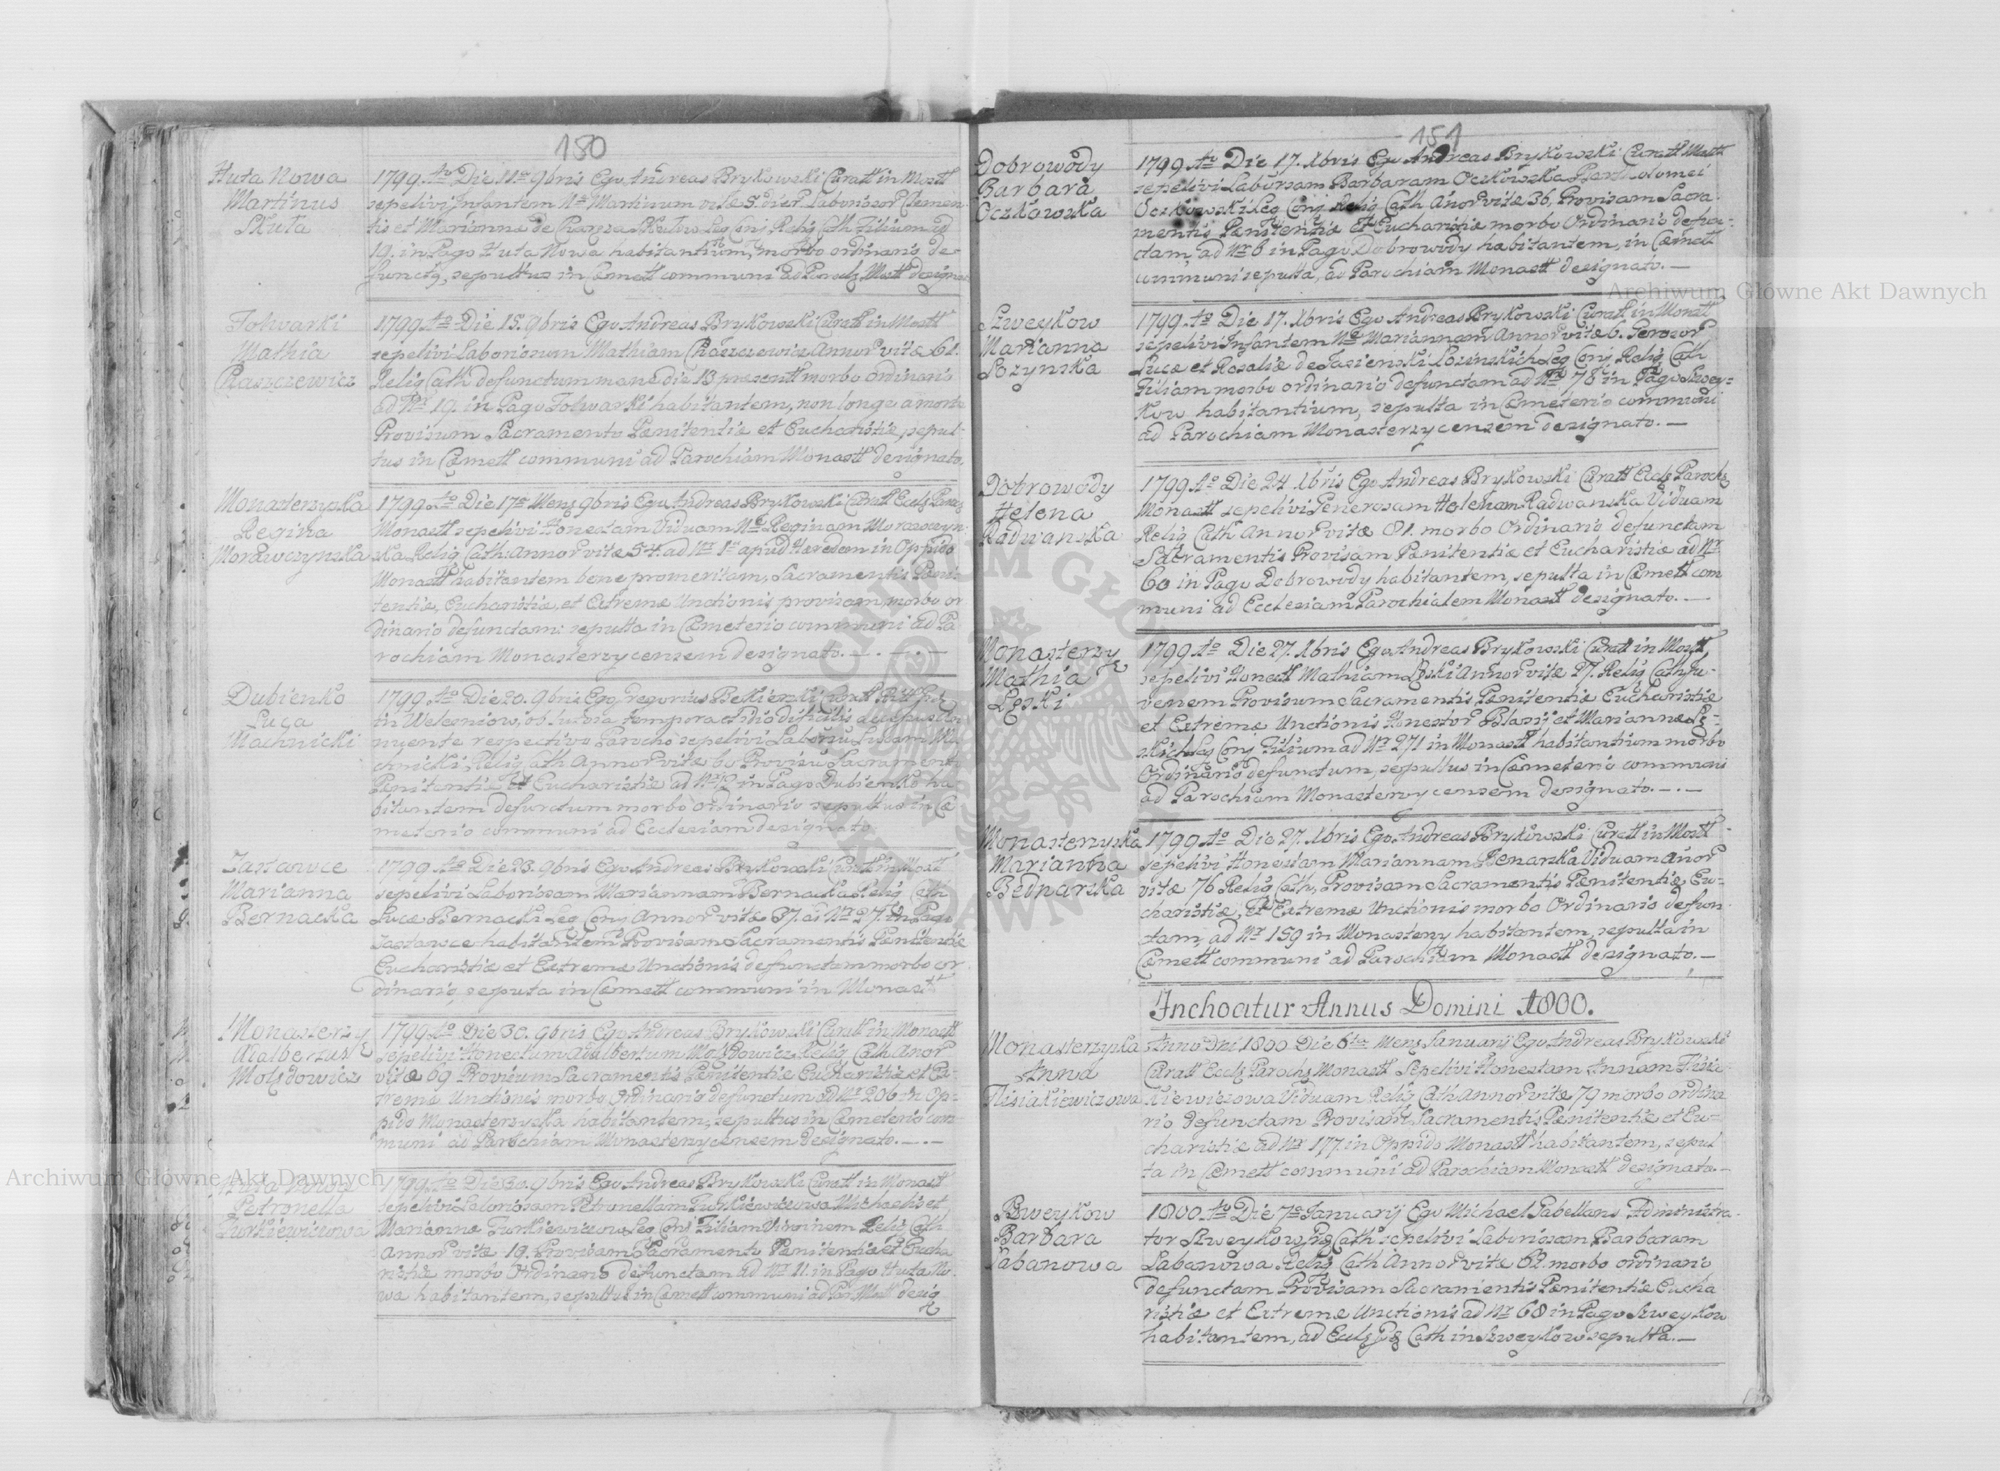 180
Huta Nowa
Martinus
Skuta
1799 Ao Die 11ma 9bris Ego Andreas Brykowski Curatt in Mostt
sepelivi Infantem Nne Martinum vitæ 5 dier Laborisor Clemen-
tis et Marianna de Skutow Leg Conj Relig Cath Filium ad
19. in Pago Huta Nowa habitantium, morbo ordinario de-
functg, sepultus in Cæmett communi ad Paroch Mostt designa
Folwarki
Mathia
Ptaszczewicz
1799 Ao Die 15. 9bris Ego Andreas Brykowski Curatt in Mostt
sepelivi Laboriosum Mathiam Annor vitæ 61.
Relig Cath defunctum mane die 13 presentt morbo ordinario
ad Nr 19. in Pago Folwarki habitantem, non longe a morte
Provisum Sacramento Pænitentiæ et Eucharistiæ, sepul-
tus in Cæmett communi ad Parochiam Monastt designato.
Monasterzyska
Regina
Morawczynska
1799 Ao Die 17ma Mens 9bris Ego Andreas Brykowski Curatt Eccls Paroch
Monastt sepelivi Honestam Viduam Nne Reginam Morawczyn-
ska Relig Cath Annor vitæ 54. ad Nr 1 apud Hæredem in Oppido
Monastt habitantem bene promeritam, Sacramentis Pæni-
tentiæ, Eucharistiæ, et Extreme Unctionis provisam, morbo or
dinario defunctam: sepulta in Cæmeterio communi ad Pa
rochiam Monasterzycensem designato. — . — . —
Dubienko
Luca
Machnicki
1799 Ao Die 20. 9bris Ego Gregorius
in Welesniow, ob tempora difficilis
nuente respectivo Parocho sepelivi Labori Lucam Ma
chnicki, Relig Cath Annor vitæ 60 Sacramenti
Pænitentiæ et Eucharistiæ ad Nr 12 in Pago Dubienko ha
bitantem defunctum morbo ordinario sepultus in Cæ
meterio communi ad Ecclesiam designato
Zastawce
Marianna
Bernacka
1799 Ao Die 23. 9bris Ego Andreas Brykowski Curatt in Mostt
sepelivi Laboriosam Mariannam Bernacka Relig Cath
Lucæ Bernacki Leg Conj Annor vitæ 37. ad Nr 27. in Pago
Zastawce habitantem Provisam Sacramentis Pænitentiæ
Eucharistiæ et Extreme Unctionis defunctam morbo or
dinario, sepulta in Cæmett communi in Monastt
Monasterzy
Adalbertus
Motsdowicz
1799 Ao Die 30. 9bris Ego Andreas Brykowski Curatt in Monastt
sepelivi Honestum Adalbertum Motsdowicz Relig Cath Anor
vitæ 69 Provisum Sacramentis Pænitentiæ Eucharistiæ et Ex-
treme Unctionis morbo Ordinario defunctum ad Nr 206 in Op-
pido Monasterzyska habitantem, sepultus in Cæmeterio com
muni ad Parochiam Monasterzycensem designato. — . —
Huta Nowa
Petronella
Turkiewiczowa
1799 Ao Die 30. 9bris Ego Andreas Brykowski Curatt in Monastt
sepelivi Laboriosam Petronellam Turkiewiczowa Michaelis et
Marianne Turkiewiczow Leg Conj Filiam Virginem Relig Cath
Annor vitæ 19. Provisam Sacramento Pænitentiæ et Eucha
ristiæ morbo Ordinario defunctam ad Nr 11. in Pago Huta No
wa habitantem, sepultus in Cæmett communi ad Par Mostt desig
151
Dobrowody
Barbara
Oczkowska
1799 Ao Die 17. Xbris Ego Andreas Brykowski Curatt Mostt
sepelivi Laborsam Barbaram Oczkowska Bartholomei
Oczkowski Leg Conj Relig Cath Anor vitæ 36. Provisam Sacra-
mentis Pænitentiæ et Eucharistiæ morbo Ordinario defun-
ctam, ad Nr 6 in Pago Dobrowody habitantem, in Cæmett
communi sepulta, ad Parochiam Monastt designato. —
Szweykow
Marianna
Łozynska
1799 Ao Die 17. Xbris Ego Andreas Brykowski Curatt in Monast
sepelivi Infantem Nne Mariannam Annor vitæ 6. Generor
Lucæ et Rosaliæ de Jasienski Łozinskich Leg Conj Relig Cath
Filiam morbo ordinario defunctam ad Nr 78 in Pago Szwey-
kow habitantium, sepulta in Cæmeterio communi
ad Parochiam Monasterzycensem designato. —
Dobrowody
Helena
Radwanska
1799 Ao Die 24 Xbris Ego Andreas Brykowski Curatt Eccls Paroch
Monastt sepelivi Generosam Helenam Radwanska Viduam
Relig Cath Annor vitæ 81. morbo Ordinario defunctam
Sacramentis Provisam Pænitentiæ et Eucharistiæ ad Nr
60 in Pago Dobrowody habitantem, sepulta in Cæmett com
muni ad Ecclesiam Parochialem Monastt designato. —
Monasterzy
Mathia
Łęski
1799 Ao Die 27. Xbris Ego Andreas Brykowski Curatt in Mostt,
sepelivi Honestt Mathiam Łęski Annor vitæ 27. Relig Cath Ju-
venem Provisum Sacramentis Pænitentiæ Eucharistiæ
et Extreme Unctionis Honestor Blasij et Mariannæ Łę-
skich Leg Conj Filium ad Nr 271 in Monastt habitantium morbo
Ordinario defunctum, sepultus in Cæmeterio communi
ad Parochiam Monasterzycensem designato. — . —
Monasterzyska
Marianna
Bednarska
1799 Ao Die 27. Xbris Ego Andreas Brykowski Curatt in Mostt
sepelivi Honesam Mariannam Viduam Anor
vitæ 76 Relig Cath, Provisam Sacramentis Pænitentiæ, Eu-
charistiæ, et Extreme Unctionis morbo Ordinario defun-
ctam, ad Nr 159 in Monasterzy habitantem, sepulta in
Cæmett communi ad Parochiam Monastt designato. —
Inchoatur Annus Domini 1800.
Monasterzyska
Anna
Flisiakiewiczowa
Anno Dni 1800 Die 6ta Mens Januarij Ego Andreas Brykowski
Curatt Eccls Paroch Monastt Sepelivi Honestam Annam Flisia-
kiewiczowa Viduam Relig Cath Annor vitæ 79 morbo ordina
rio defunctam Provisam Sacramentis Pænitentiæ et Eu-
charistiæ ad Nr 177. in Oppido Monastt habitantem, sepul
ta in Cæmett communi ad Parochiam Monastt designato —
Szweykow
Barbara
Labanowa
1800 Ao Die 7ma Januarij Ego Michael Sabellans Administra-
tor Szweykow Cath sepelivi Laboriosam Barbaram
Labanowa Relig Cath Annor vitæ 62. morbo ordinario
defunctam Provisam Sacramentis Pænitentiæ Eucha
ristiæ et Extreme Unctionis ad Nr 68 in Pago Szweykow
habitantem, ad Eccls Cath in Szweykow sepulta. —
Archiwum Główne Akt Dawnych
Archiwum Główne Akt Dawnych
ARCHIWUM GŁÓWNE AKT DAWNYCH